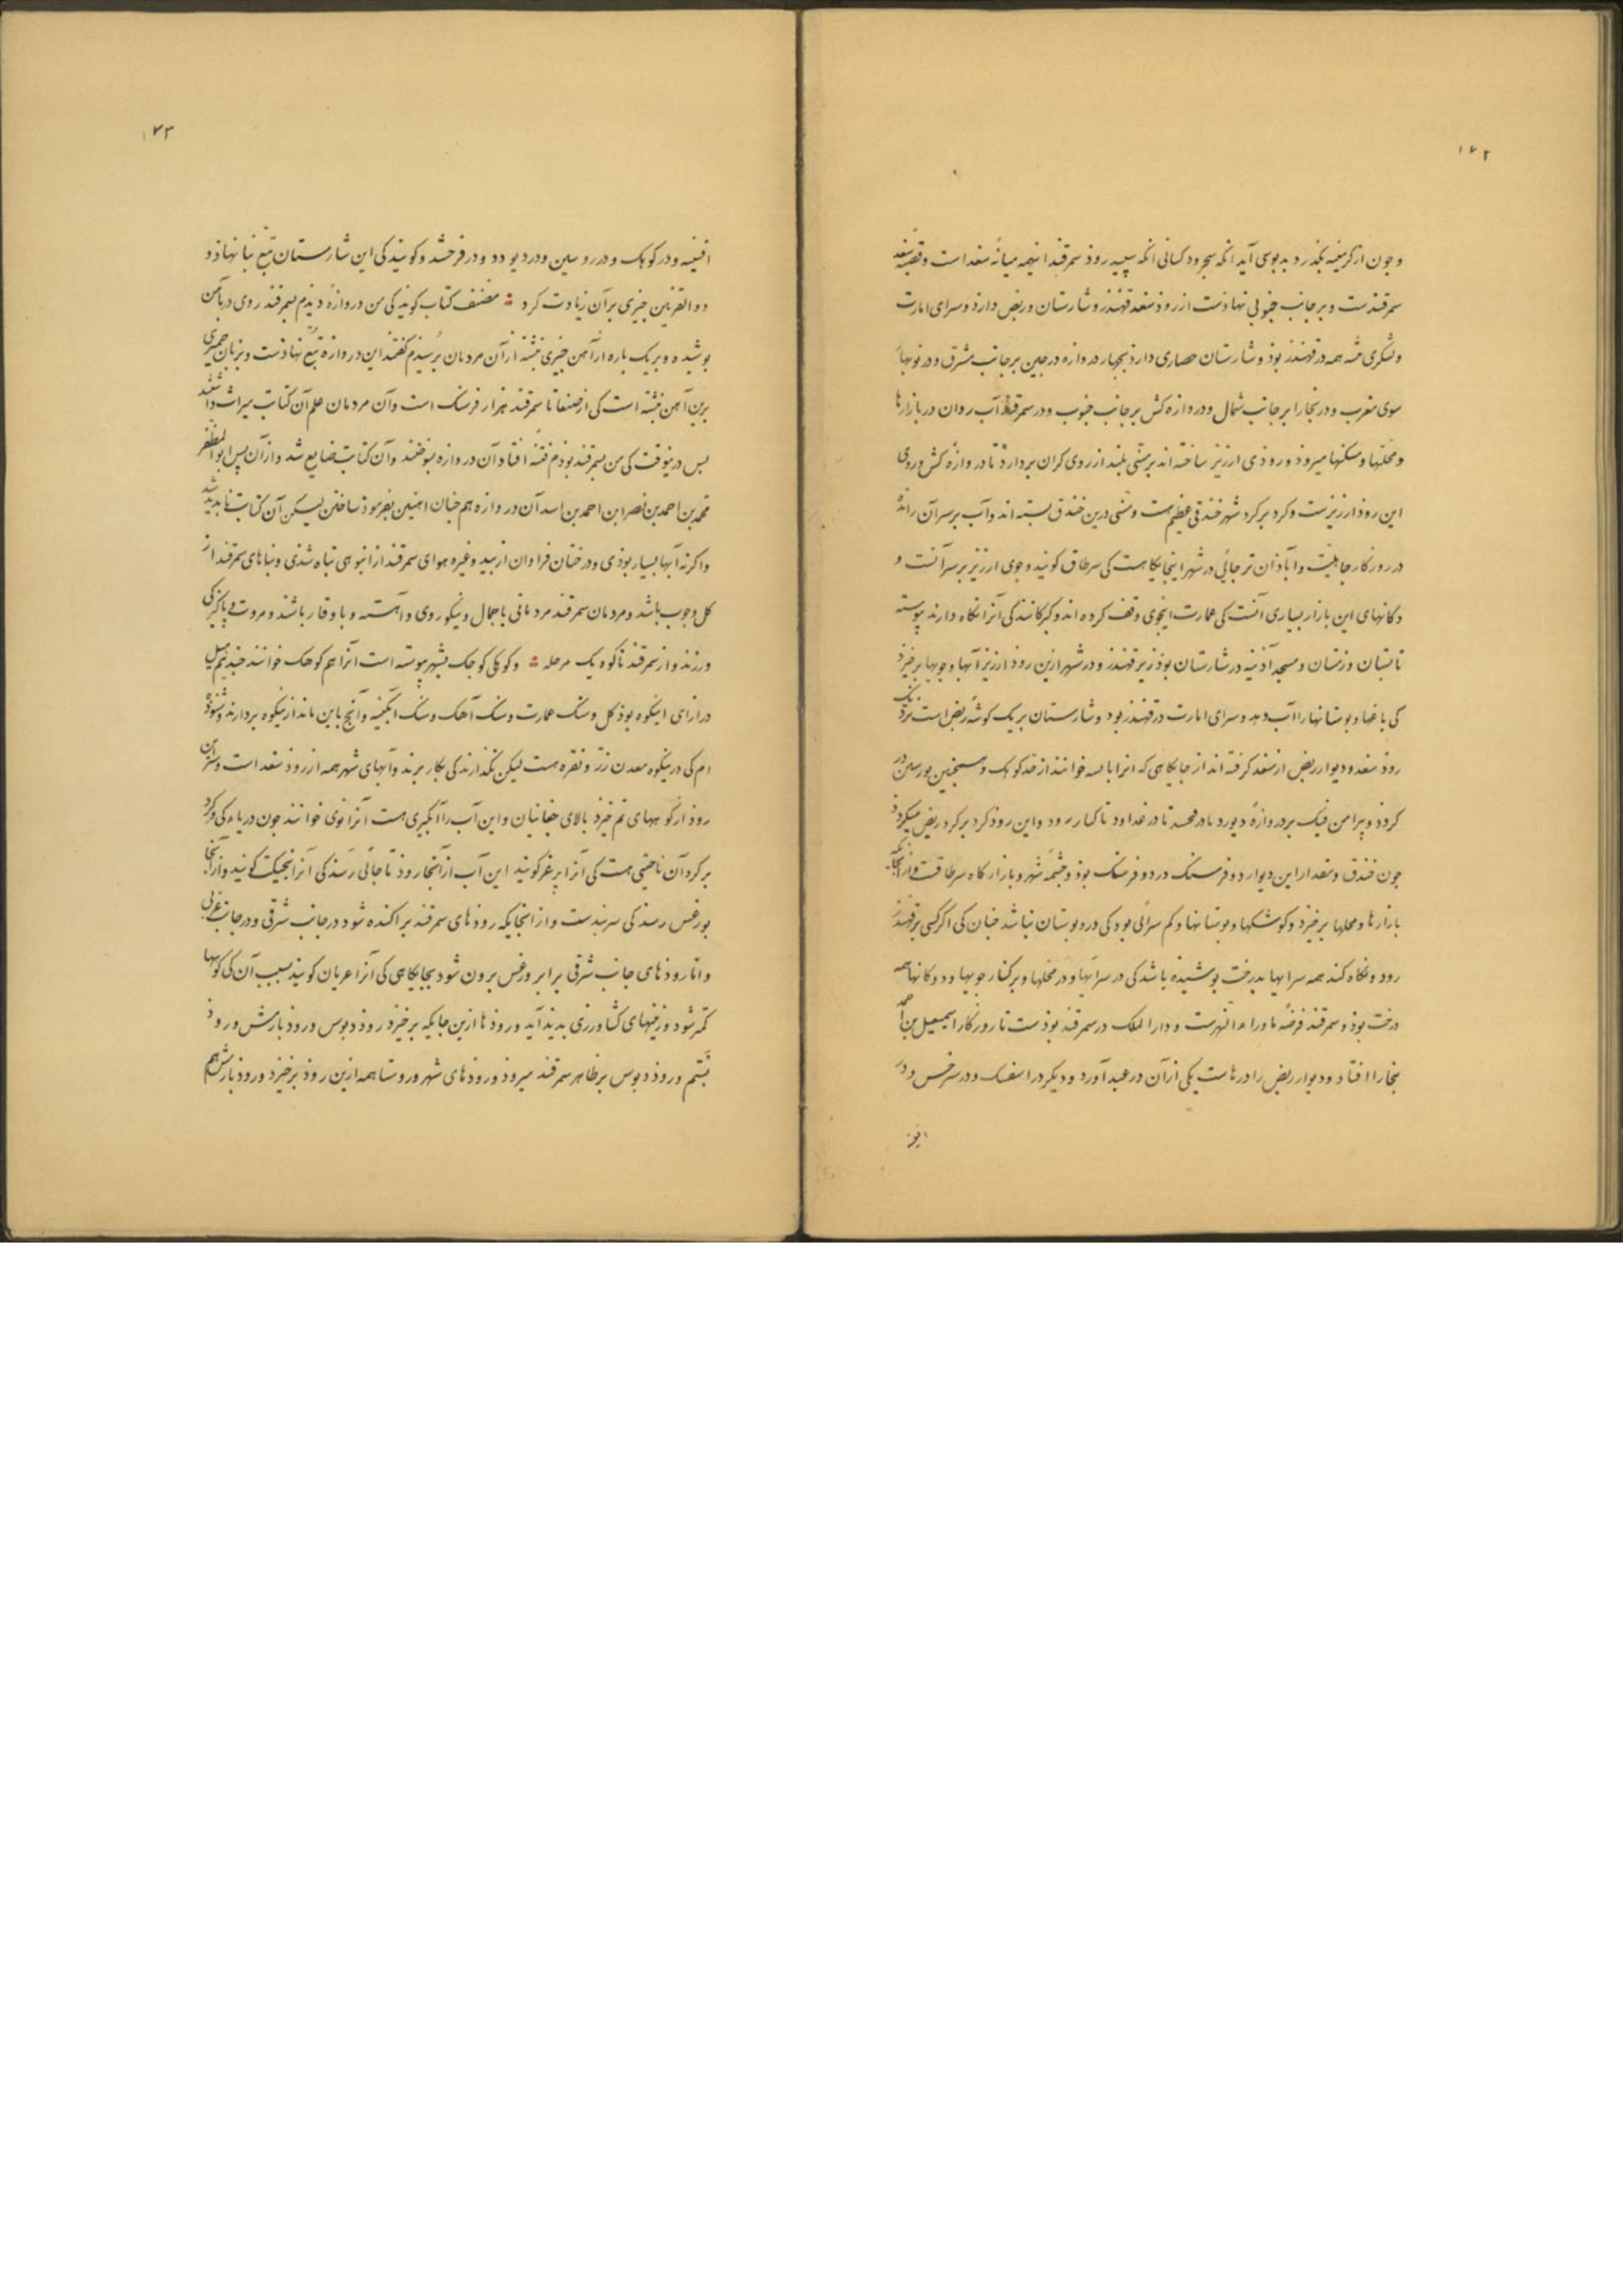 ۱۷۲
و چون از کرمینیه بگذرد بدبوسی آید آنکه سپید رود سمرقند اینهمه میانهٔ سغد است و قصبهٔ سغد
سمرقندست و بر جانب جنوبی نهاذست از روذ سغد قهندز و شارستان و ربض دارذ و سرای امارت
و لشکری همه در قهندز بوذ و شارستان حصاری دارد بچهار دروازه در چین بر جانب مشرق و در نوبهار
سوی مغرب و در بخارا بر جانب شمال و دروازه کش بر جانب جنوب و در سمرقند آب روان در بازارها
و محلتها و مسکنها میروذ و روذی ارزیز ساخته اند بر بلند از روی کران بردارد تا در وازه کش و روی
این روذ ارزیزست و کرد بر کرد شهر خندقی عظیم هست و درین خندق بسته اند و آب بر سر آن رانده
در روزکار جاهلیت و آباذان تر جائی در شهر اینجایکاهست کی سرطاق کویند و جوی ارزیز بر سر آنست و
دکانهای این بازار بسیاری آنست کی عمارت اینجوی وقف کرده اند و کبرکانند کی آنرا نکاه دارند پیوسته
تابستان و زمستان و مسجد آدینه در شارستان بوذ زیر قهندز و در شهر ازین روذ ارزیز آبها و جویها برخیزذ
کی باغها و بوستانها را آب دهد و سرای امارت در قهندز بود و شارستان بر یک کوشهٔ ربض است نزدیک
روذ سغد و دیوار ربض از سغد کرفته اند از جایکاهی که آنرا خوانند از حد کوهک و در
کردذ و پیرامن بر دروازهٔ دیورد تا در تا در غداود تا کنار رود و این روذ کرد بر کرد ربض میکردذ
چون خندق و مقدار این دیوار دو فرسنک در دو فرسنک بوذ و چشمهٔ شهر و بازار کاه سرطاقست و از آنجا
بازارها و محلها برخیزد و کوشکها و بوستانها و کم سرائی بود کی درو بوستان نباشد چنان کی اکر کسی بر قهندز
رود و نکاه کند همه سرایها بدرخت پوشیده باشد کی در سرایها و در محلها و بر کنار جویها و دکانها همه
درخت بوذ و سمرقند فرضهٔ ماوراء النهرست و دار الملک در سمرقند بوذست تا روزکار اسمعیل بن احمد
ببخارا افتاد و دیوار ربض را درهاست یکی ازآن در غداورد و دیکر در اسفسک و در سرخس و در
۱۷۳
افشینه و در کوهک و در و در دیوودد و در فرخشد و کویند کی این شارستان تبع بنا نهاذ و
ذو القرنین چیزی بر آن زیادت کرد ؞ مصنف کتاب کوید کی من دروازهٔ دیذم بسمرقند روی در باهن
پوشیده و بر یک پاره از آهن چیزی نبشته از آن مردمان پرسیذم کفتند این دروازه تبع نهاذست و بزبان حمیری
برین آهن نبشته است کی از صنعا تا سمرقند هزار فرسنک است و آن مردمان علم آن کتابت میراث داشتند
پس درینوقت کی من بسمرقند بودم فتنه افتاد آن دروازه بسوختند و آن کتابت ضایع شد و از آن پس ابو المظفر
محمد بن احمد بن نصر ابن احمد بن اسد آن دروازه هم چنان آهنین بفرموذ ساختن لیکن آن کتابت ناپدید شد
و اکر نه آبها بسیار بوذی و درختان فراوان از بید و غیره هوای سمرقند از انبوهی تباه شدی و بناهای سمرقند از
کل و چوب باشد و مردمان سمرقند مردمانی با جمال و نیکو روی و آهسته و با وقار باشند و مروت و پاکیزکی
ورزند و از سمرقند تا کوه یک مرحله ؞ و کوهی کوچک بشهر پیوسته است آنرا هم کوهک خوانند چند نیم میل
درازای اینکوه بوذ کل و سنک عمارت و سنک آهک و سنک آبکینه و آنچ باین ماند ازینکوه بردارند و شنوده
ام کی درینکوه معدن زر و نقره هست لیکن نکذارند کی بکار برند و آبهای شهر همه از روذ سغد است و سر این
روذ از کوههای تم خیزد بالای چغانیان و این آب را آبکیری هست آنرا نوی خوانند چون دریاء کی و کرد
بر کرد آن ناحیتی هست کی آنرا برغر کویند این آب از آنجا روذ تا جائی رسد کی آنرا بنجیکت کویند و از آنجا
بورغس رسد کی سر بندست و از آنجایکه روذهای سمرقند پراکنده شود در جانب شرقی و در جانب غربی
و اما روذهای جانب شرقی برابر ورغس برون شود بجایکاهی کی آنرا کویند بسبب آن کی کوهها
کمتر شود و زمینهای کشاورزی پدید آید و روذها ازین جایکه برخیزد روذ دبوس و روذ بارمش و روذ
بشتم و روذ دبوس بر ظاهر سمرقند میروذ و روذهای شهر و روستا همه ازین روذ برخیزد و روذ بارمش هم